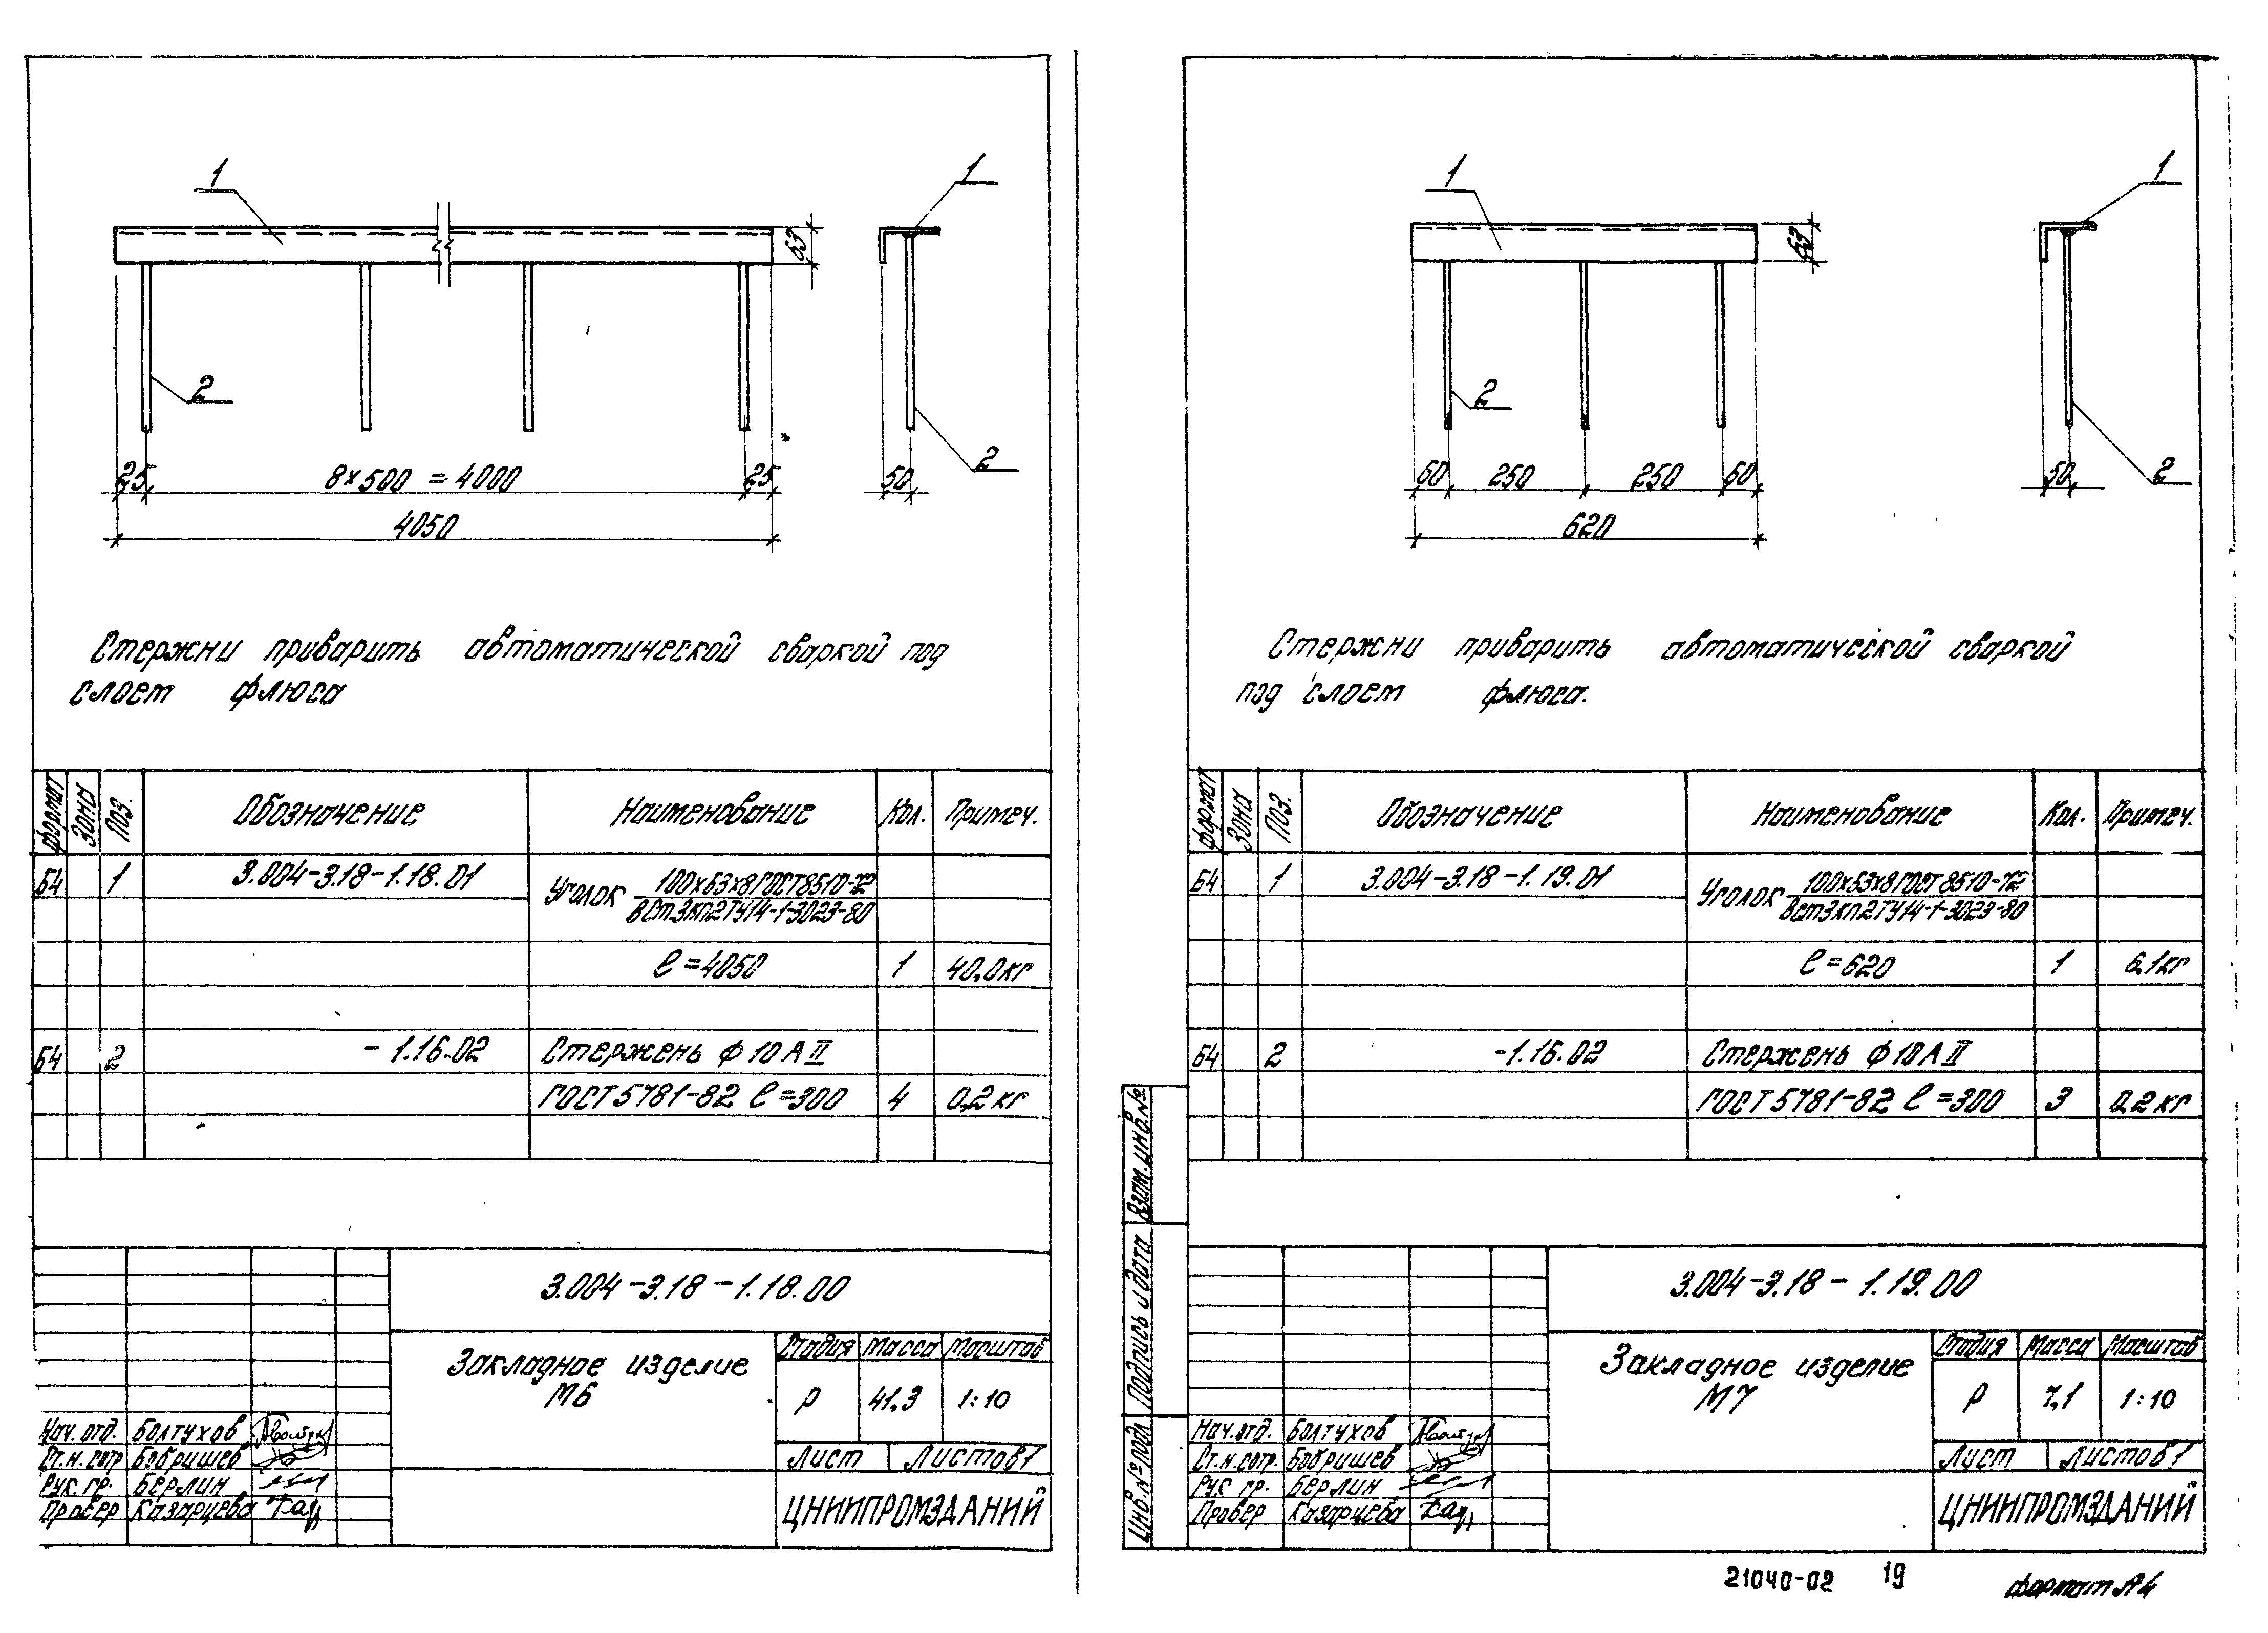 1
1
63
2
2
25
8×500 = 4000
25
50
4050
Стержни приварить автоматической сваркой под
слоем флюса
формат
Зона
Поз.
Обозначение
Наименование
Кол.
Примеч.
Б4
1
3.004-3.18-1.18.01
Уголок 100×63×8 ГОСТ 8510-72
ВСт3кп2 ТУ14-1-3023-80
ℓ=4050
1
40,0кг
Б4
2
- 1.16.02
Стержень ф 10 А II
ГОСТ 5781-82 ℓ=300
4
0,2 кг
3.004-3.18-1.18.00
Закладное изделие
М6
Стадия
Масса
Масштаб
Р
41,3
1:10
Лист
Листов 1
Нач. отд. Болтухов
Ст.н.сотр Бобришев
Рук. гр. Берлин
Провер Казарцева
ЦНИИПРОМЗДАНИЙ
1
1
63
2
2
60
250
250
60
50
620
Стержни приварить автоматической сваркой
под слоем флюса.
формат
Зона
Поз.
Обозначение
Наименование
Кол.
Примеч.
Б4
1
3.004-3.18-1.19.01
Уголок 100×63×8 ГОСТ 8510-72
ВСт3кп2 ТУ14-1-3023-80
ℓ=620
1
6,1кг
Б4
2
-1.16.02
Стержень ф 10 А II
ГОСТ 5781-82 ℓ=300
3
0,2 кг
Взам. инв. №
Подпись и дата
Инв. № подл
3.004-3.18-1.19.00
Закладное изделие
М7
Стадия
Масса
Масштаб
Р
7,1
1:10
Лист
Листов 1
Нач. отд. Болтухов
Ст.н.сотр. Бобришев
Рук гр. Берлин
Провер Казарцева
ЦНИИПРОМЗДАНИЙ
21040-02 19
формат А4